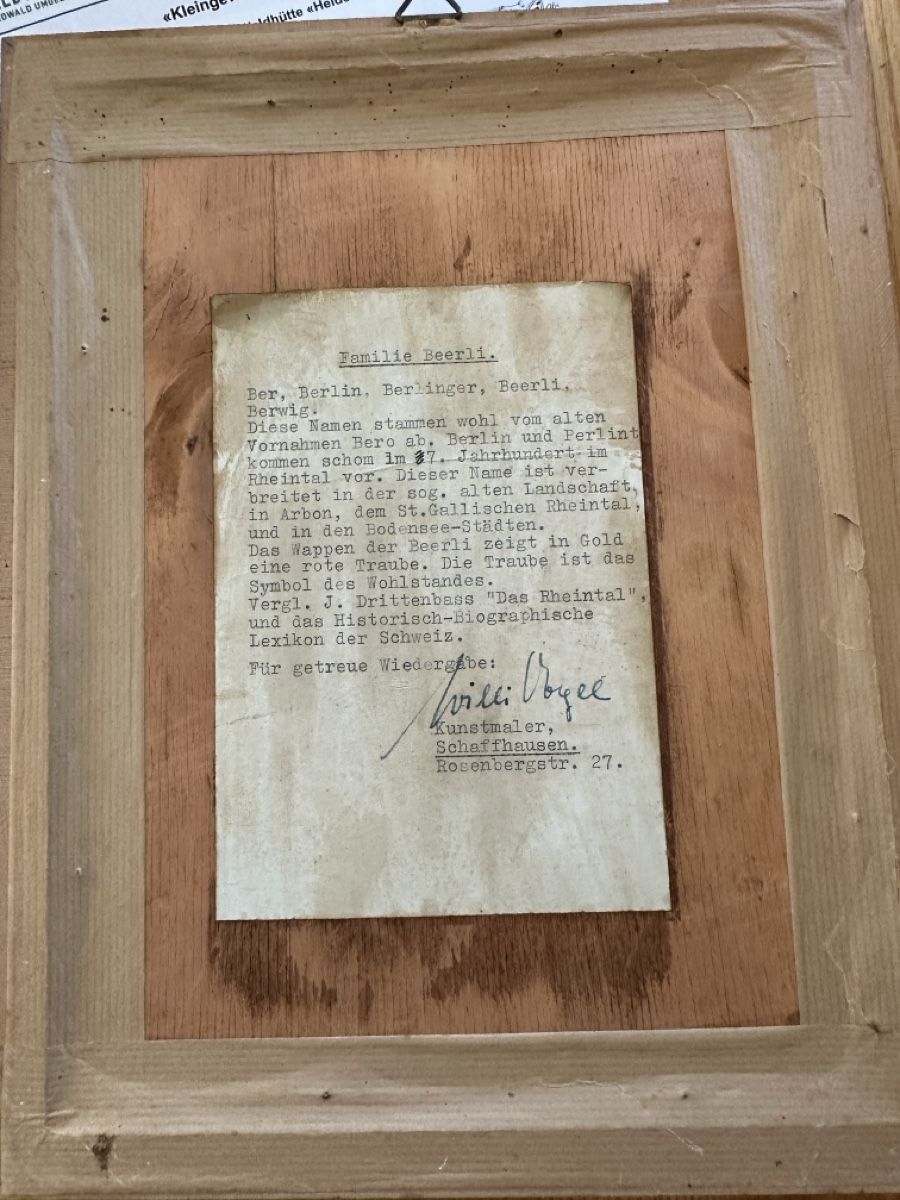 «Kleinge
Familie Beerli.
Ber, Berlin, Berlinger, Beerli,
Berwig.
Diese Namen stammen wohl vom alten
Vornahmen Bero ab. Berlin und Perlint
kommen schom im 7. Jahrhundert im
Rheintal vor. Dieser Name ist ver-
breitet in der sog. alten Landschaft,
in Arbon, dem St.Gallischen Rheintal,
und in den Bodensee-Städten.
Das Wappen der Beerli zeigt in Gold
eine rote Traube. Die Traube ist das
Symbol des Wohlstandes.
Vergl. J. Drittenbass "Das Rheintal",
und das Historisch-Biographische
Lexikon der Schweiz.
Für getreue Wiedergabe:
Willi Vogel
Kunstmaler,
Schaffhausen.
Rosenbergstr. 27.